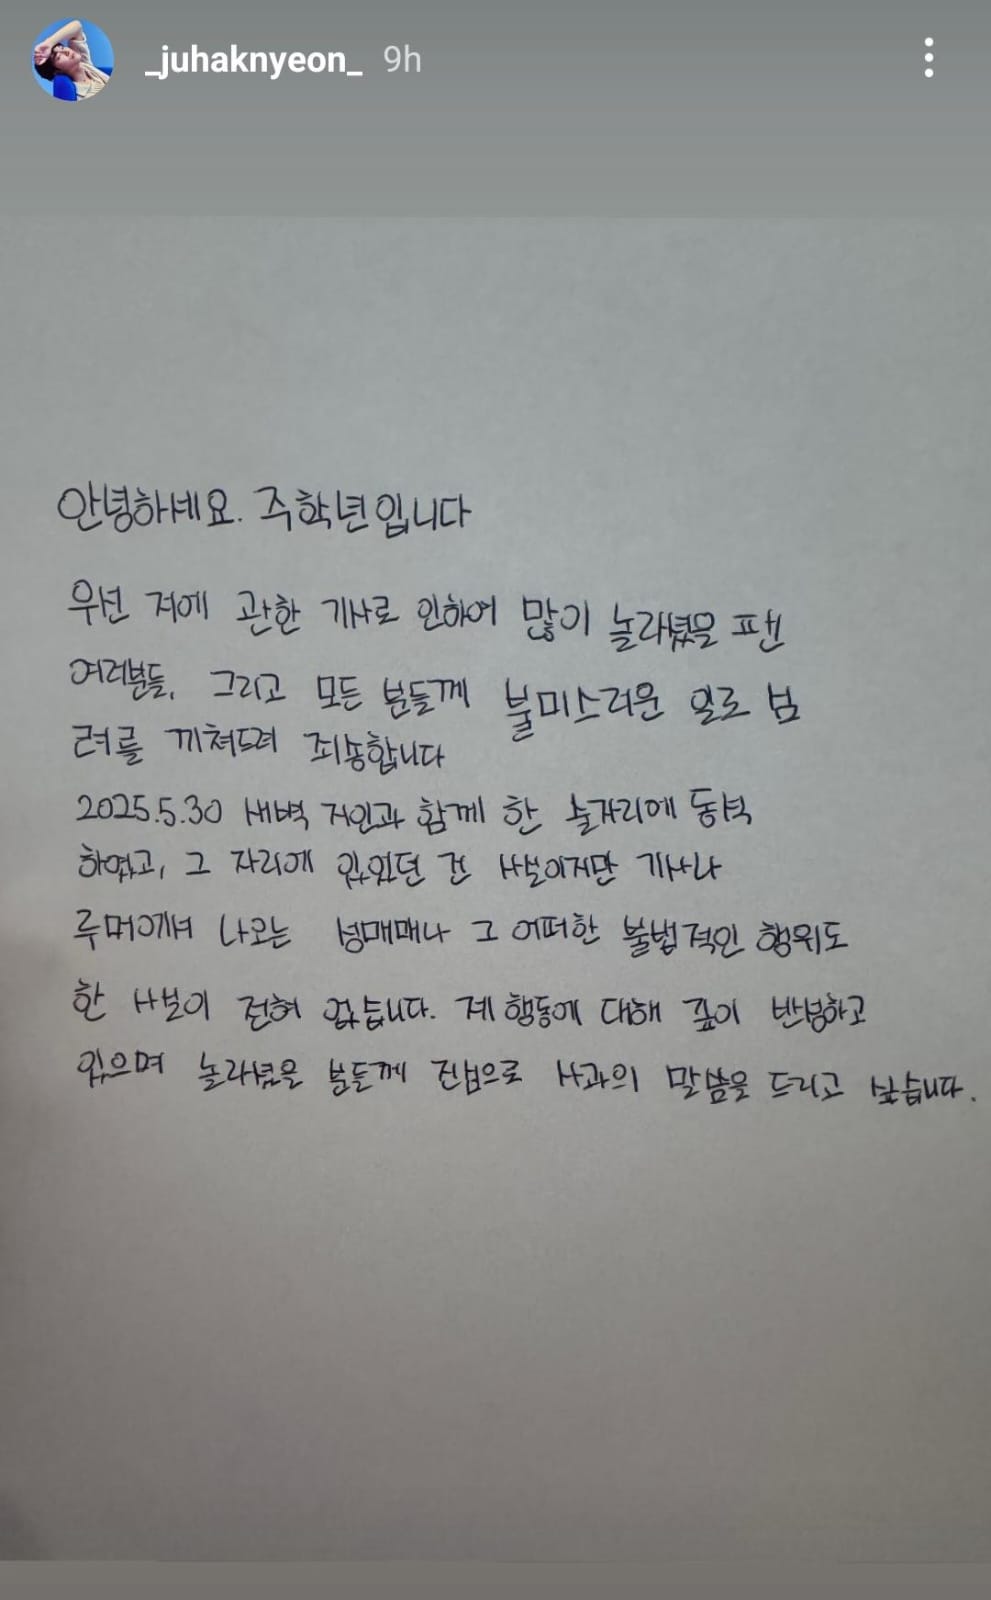 _juhaknyeon_ 9h
안녕하세요. 주학년입니다
우선 저에 관한 기사로 인하여 많이 놀라셨을 팬
여러분들, 그리고 모든 분들께 불미스러운 일로 심
려를 끼쳐드려 죄송합니다
2025.5.30 새벽 지인과 함께 한 술자리에 동석
하였고, 그 자리에 있었던 건 사실이지만 기사나
루머에서 나오는 성매매나 그 어떠한 불법적인 행위도
한 사실이 전혀 없습니다. 제 행동에 대해 깊이 반성하고
있으며 놀라셨을 분들께 진심으로 사과의 말씀을 드리고 싶습니다.